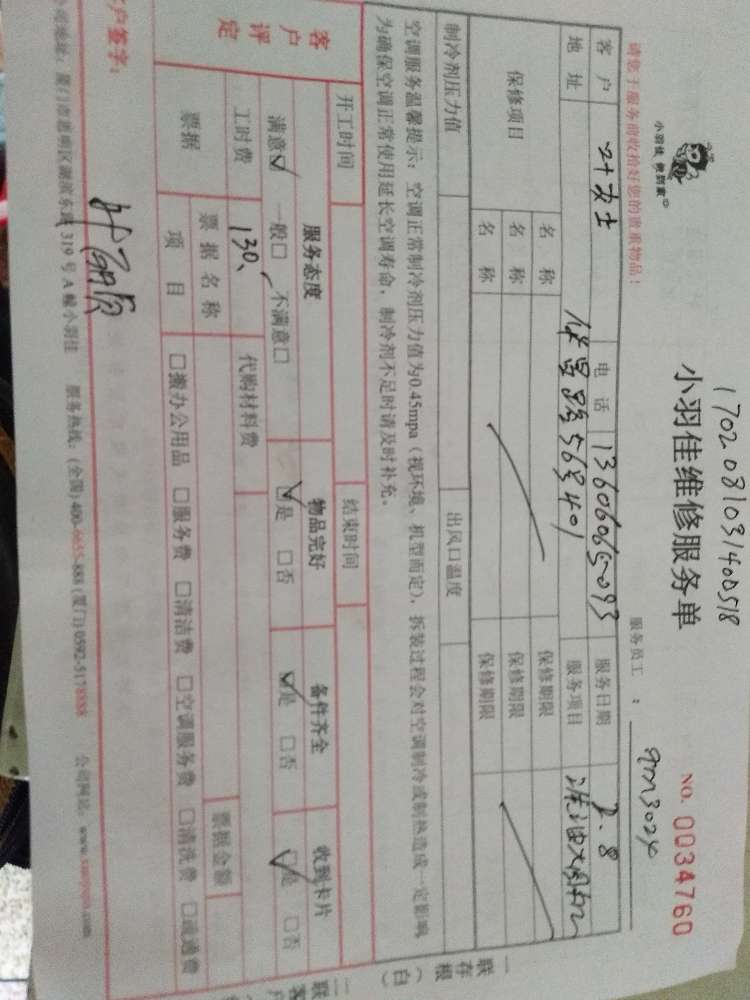 1702081031400518
小羽佳 俺到家
小羽佳维修服务单
NO. 0034760
请您于服务前收拾好您的贵重物品！
服务员工：
qm3024
客户 女士 电话 13606065093 服务日期 2.8
地址 56号401 服务项目 洗油烟机
保修项目
名称 保修期限
名称 保修期限
名称 保修期限
制冷剂压力值 出风口温度
空调服务温馨提示：空调正常制冷剂压力值为0.45mpa（视环境、机型而定），拆装过程会对空调制冷或制热造成一定影响
为确保空调正常使用延长空调寿命，制冷剂不足时请及时补充。
开工时间 结束时间
客户评定
服务态度 物品完好 备件齐全 收到卡片
满意☑ 一般□ 不满意□ ☑是 □否 ☑是 □否 ☑是 □否
工时费 130、 代购材料费
票据 票据名称 票据金额
项目 □搬办公用品 □服务费 □清洁费 □空调服务费 □清洗费 □疏通费
户签字：
司地址：厦门市思明区湖滨东路319号A幢小羽佳 服务热线：(全国)400-6655-888 (厦门)0592-5178888 公司网站：
一联存根（白）
二联客户